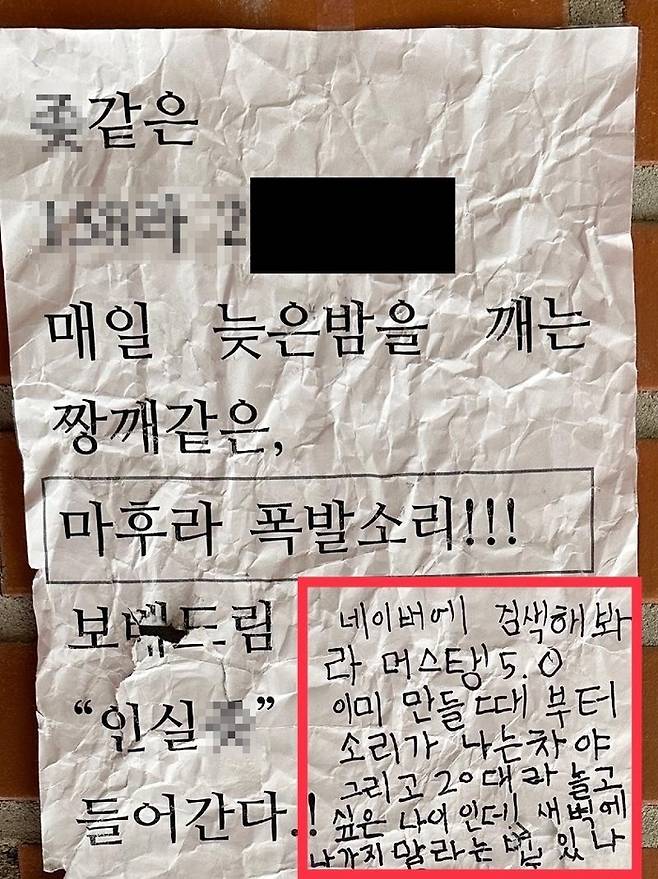 같은
매일 늦은밤을 깨는
짱깨같은,
마후라 폭발소리!!!
보배드림
“인실 ”
들어간다.!
네이버에 검색해봐
라 머스탱5.0
이미 만들때 부터
소리가 나는차야
그리고 20대라 놀고
싶은 나이인데 새벽에
나가지 말라는 법 있나